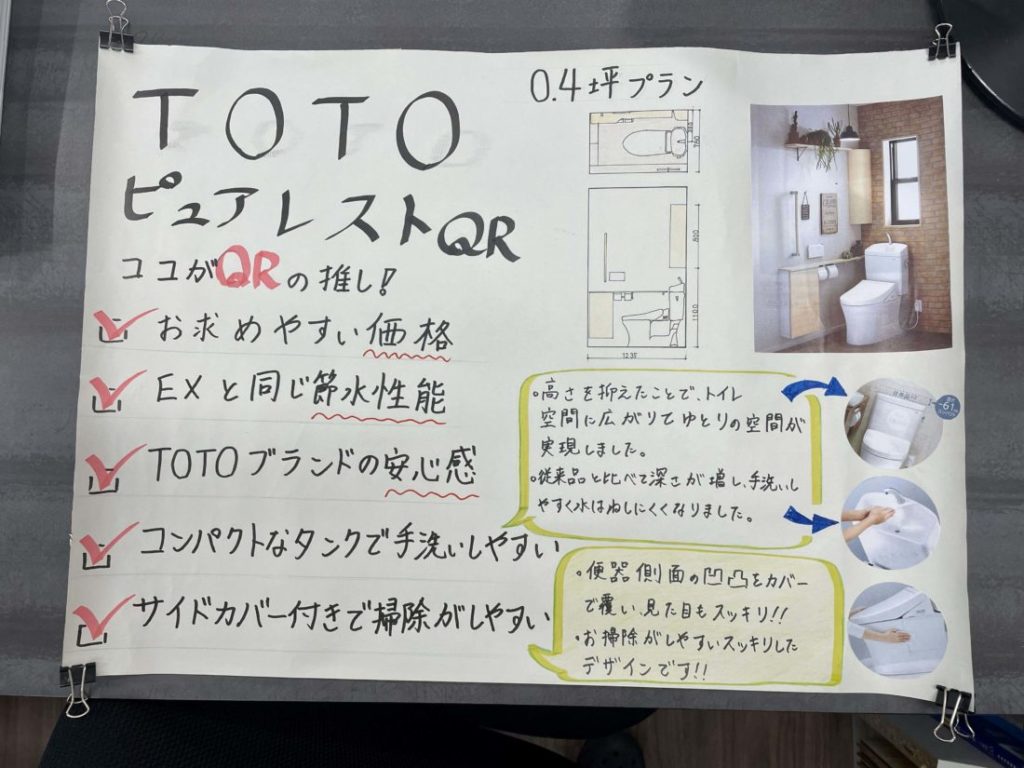 TOTO
ピュアレストQR
ココがQRの推し!
お求めやすい価格
EXと同じ節水性能
TOTOブランドの安心感
コンパクトなタンクで手洗いしやすい
サイドカバー付きで掃除がしやすい
0.4坪プラン
760
810
1100
1235
•高さを抑えたことで、トイレ
空間に広がりてゆとりの空間が
実現しました。
•従来品と比べて深さが増し、手洗いし
やすく水はねしにくくなりました。
•便器側面の凹凸をカバー
で覆い、見た目もスッキリ!!
•お掃除がしやすいスッキリした
デザインです!!
-61